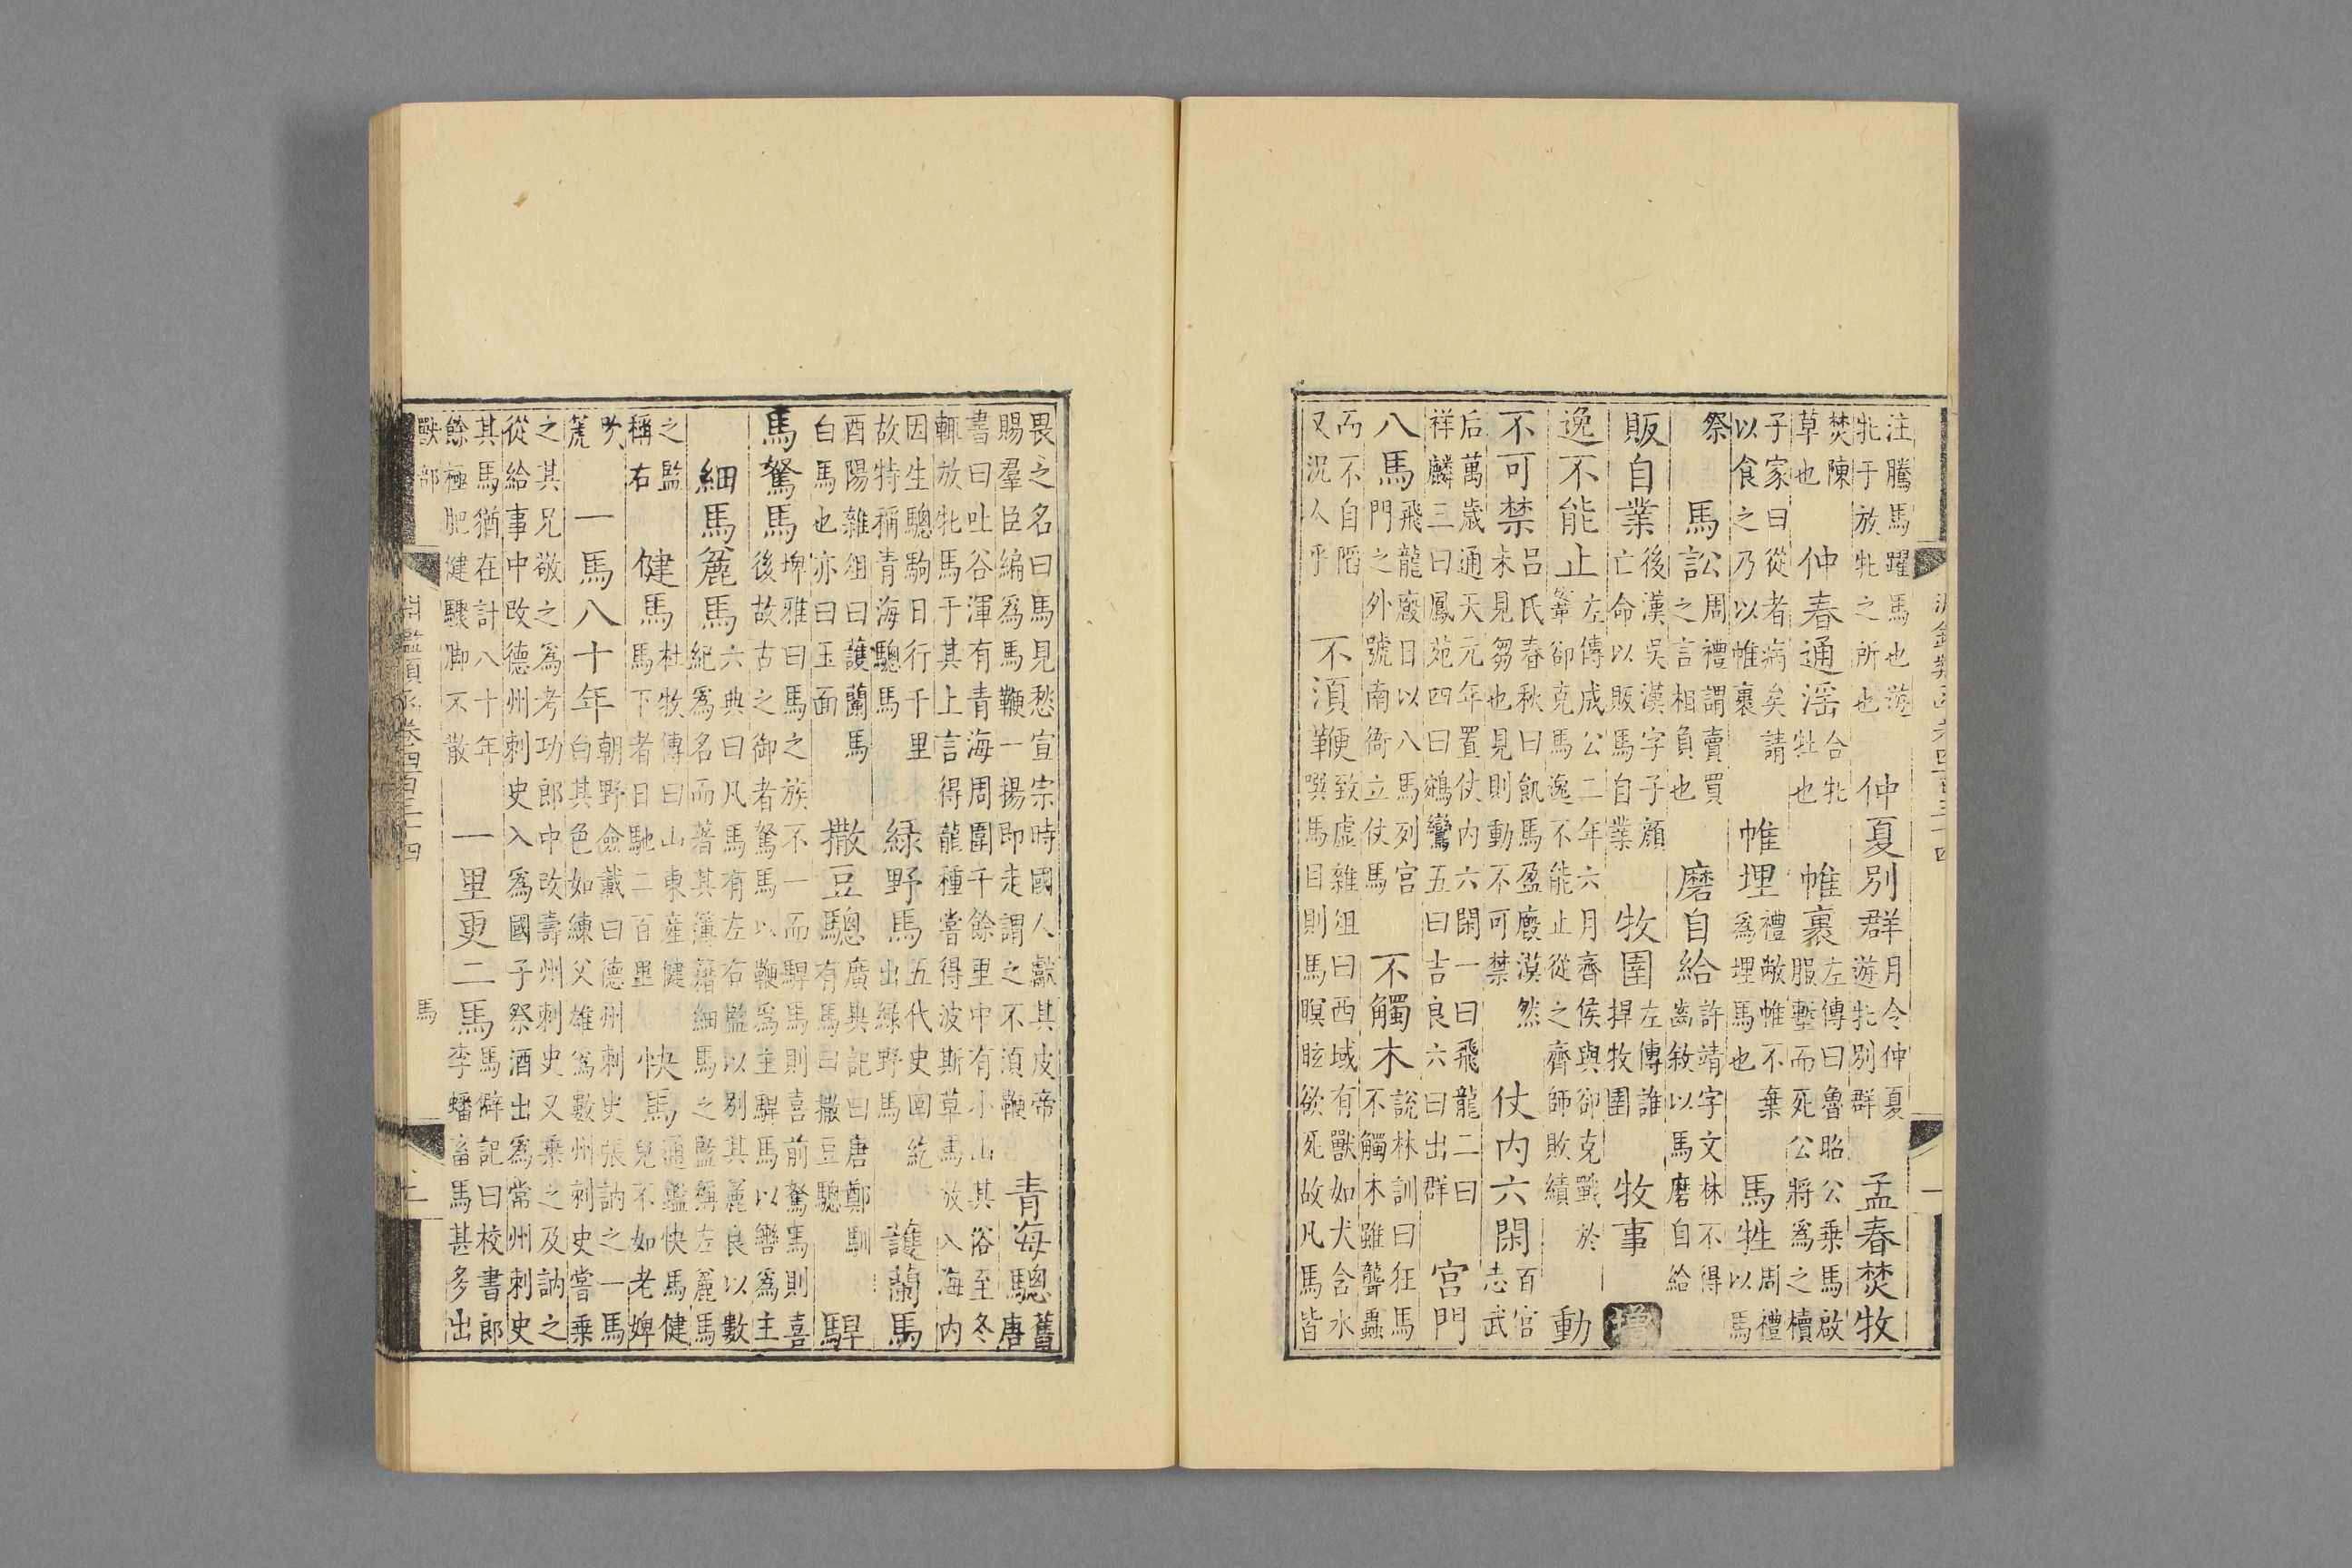 注騰馬躍馬也遊牝于放牝之所也仲夏別群月令仲夏遊牝別群孟春焚牧
焚陳草也仲春通淫合牝牡也帷裹左傳曰魯昭公乗馬啟服塹而死公將爲之櫝
子家曰從者病矣請以食之乃以帷裹帷埋禮敝帷不棄爲埋馬也馬牲周禮以馬
祭馬訟周禮謂賣買之言相負也磨自給許靖字文林不得齒敘以馬磨自給
販自業後漢吳漢字子顔亡命以販馬自業牧圉左傳誰捍牧圉牧事增
逸不能止左傳成公二年六月齊侯與卻克戰於鞌卻克馬逸不能止從之齊師敗績動
不可禁呂氏春秋曰飢馬盈廄漠然未見芻也見則動不可禁仗内六閑百官志武
后萬歳通天元年置仗内六閑一曰飛龍二曰祥麟三曰鳳苑四曰鵷鸞五曰吉良六曰出群宮門
八馬飛龍廄日以八馬列宮門之外號南衙立仗馬不觸木說林訓曰狂馬不觸木雖聾蟲
而不自陷又況人乎不湏鞭致虛雜俎曰西域有獸如犬含水噀馬目則馬瞑眩欲死故凡馬皆
畏之名曰馬見愁宣宗時國人獻其皮帝賜羣臣編爲馬鞭一揚即走謂之不湏鞭青海驄舊唐
書曰吐谷渾有青海周圍千餘里中有小山其俗至冬輒放牝馬于其上言得龍種嘗得波斯草馬放入海内
因生驄駒日行千里故特稱青海驄馬緑野馬五代史回紇出緑野馬護蘭馬
酉陽雜俎曰護蘭馬白馬也亦曰玉面撒豆驄廣輿記曰唐鄭馴有馬曰撒豆驄騂
馬駑馬埤雅曰馬之族不一而騂馬則喜前駑馬則喜後故古之御者駑馬以鞭爲主騂馬以轡爲主
細馬麄馬六典曰凡馬有左右監以別其麄良以數紀爲名而著其簿籍細馬之監稱左麄馬
之監稱右健馬杜牧傳曰山東產健馬下者日馳二百里快馬通鑑快馬健兒不如老婢
吹箎一馬八十年朝野僉載曰德州刺史張訥之一馬白其色如練父雄爲數州刺史嘗乗
之其兄敬之爲考功郎中改壽州刺史又乗之及訥之從給事中改德州刺史入爲國子祭酒出爲常州刺史
其馬猶在計八十年餘極肥健驟脚不散一里更二馬馬癖記曰校書郎李蟠畜馬甚多出
獸部 淵鑑類函卷四百三十四 馬 二